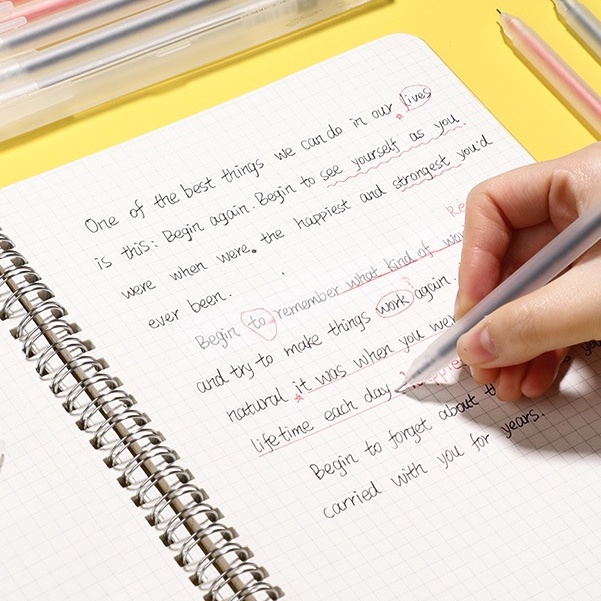 One of the best things we can do in our lives
is this: Begin again. Begin to see yourself as you
were when were. the happiest and strongest you'd
ever been.
Re
Begin to remember what kind of
and try to make things work again.
natural it was when you were
lifetime each day.
Begin to forget about the
carried with you for years.